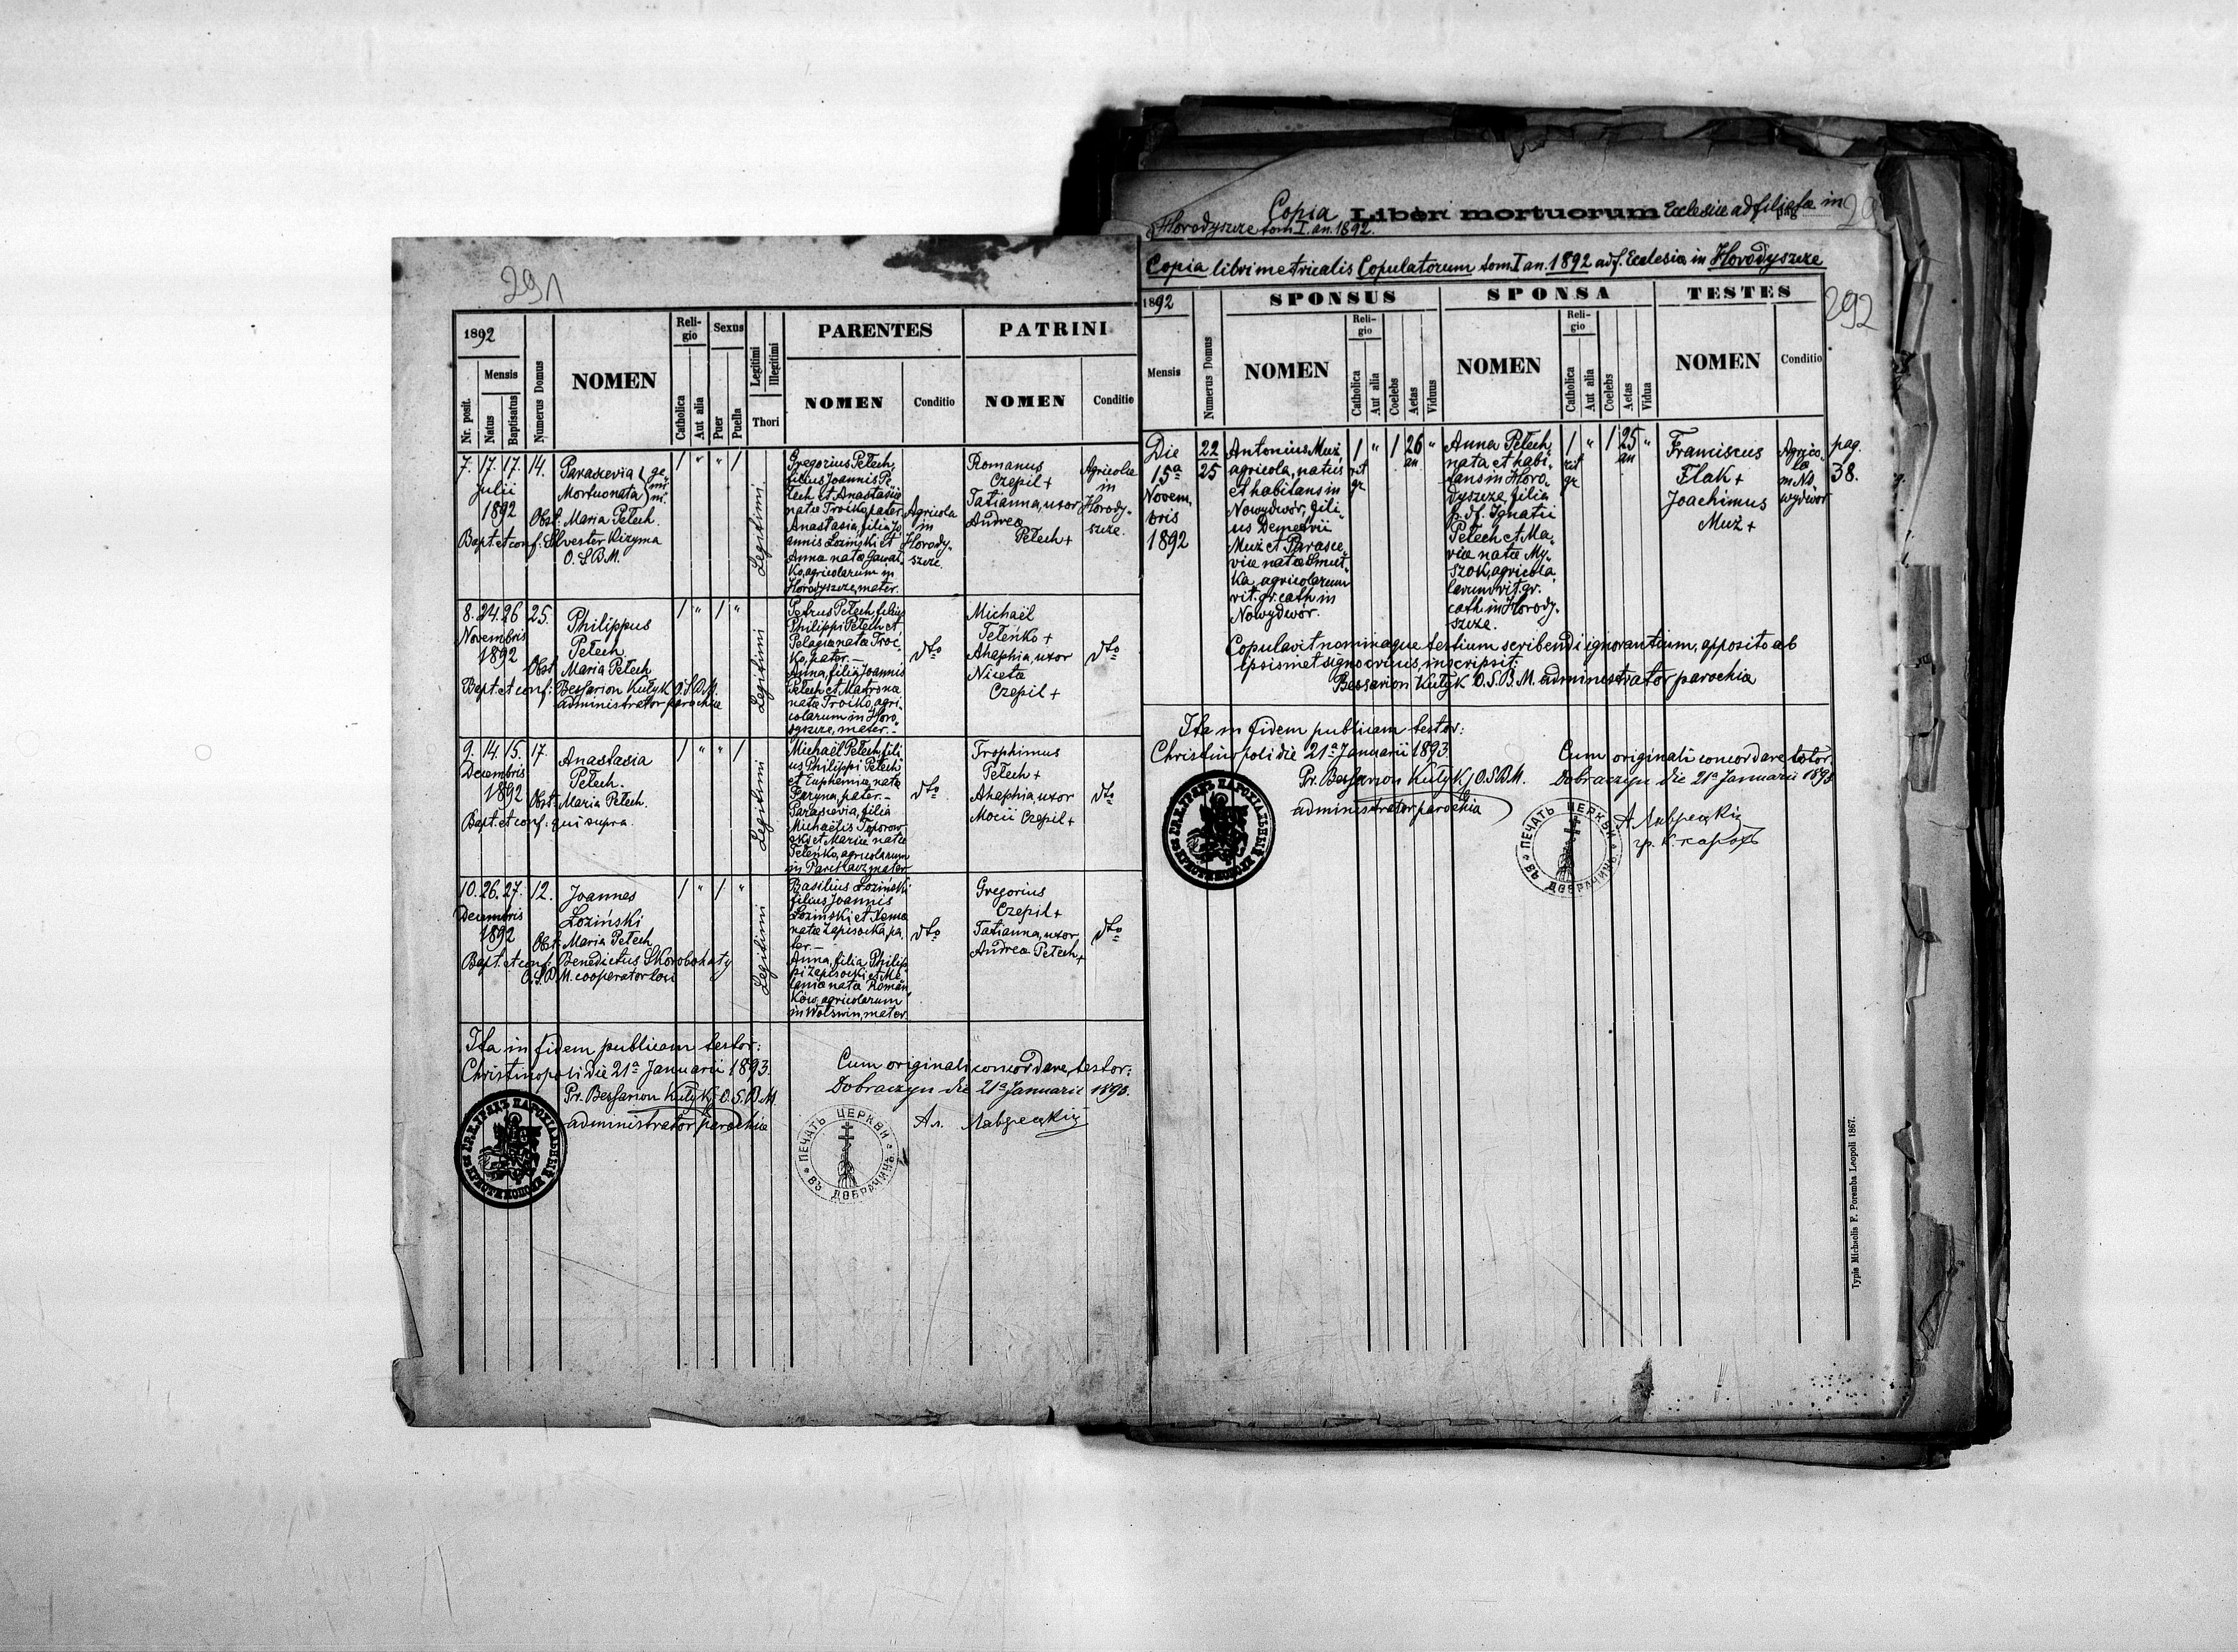 291
1892
Nr. posit.
Mensis
Natus
Baptisatus
Numerus Domus
NOMEN
Reli-
gio
Catholica
Aut alia
Sexus
Puer
Puella
Legitimi
Illegitimi
Thori
PARENTES
NOMEN
Conditio
PATRINI
NOMEN
Conditio
7. 17. 17. 14.
Julii
1892
Parascevia } ge-
Mortuonata } mi-
ni.
Obst. Maria Pełech.
Bapt. et conf: Silvester Kizyma
O. S. B. M.
1 " " 1
Legitimi
Gregorius Pełech,
filius Joannis Pe-
łech et Anastasiæ
natæ Troćko, pater
Anastasia, filia Jo-
annis Łoziński et
Anna natæ Gawał-
ko, agricolarum in
Horodyszcze, mater.
Agricola
in
Horody-
szcze.
Romanus
Czepil +
Tatianna, uxor
Andreæ
Pełech +
Agricolæ
in
Horody-
szcze.
8. 24. 26 25.
Novembris
1892
Philippus
Pełech
Obst. Maria Pełech
Bapt. et conf: Bessarion Kułyk O. S. B. M.
administrator parochiæ
1 " 1 "
Legitimi
Petrus Pełech, filius
Philippi Pełech et
Pelagia nata Troć-
ko, pater. —
Anna, filia Joannis
Pełech et Matrona
natæ Troćko, agri-
colarum in Horo-
dyszcze, mater. —
dto
Michaël
Teteńko +
Ahaphia, uxor
Nicetæ
Czepil +
dto
9. 14. 15. 17.
Decembris
1892
Anastasia
Pełech.
Obst. Maria Pełech.
Bapt. et conf: qui supra.
1 " " 1
Legitimi
Michaël Pełech, fili-
us Philippi Pełech
et Euphemiæ, natæ
Paryna, pater. —
Parascevia, filia
Michaëlis Toporow-
ski et Mariæ natæ
Teteńko, agricolarum
in Parchacz mater.
dto
Trophimus
Pełech +
Ahaphia, uxor
Mocii Czepil +
dto
10. 26. 27. 12.
Decembris
1892
Joannes
Łoziński
Obst. Maria Pełech
Bapt. et conf: Benedictus Skorobohaty
O. S. B. M. cooperator loci
1 " 1 "
Legitimi
Basilius Łoziński
filius Joannis
Łoziński et Xenia
natæ Zapisocka, pa-
ter. —
Anna, filia Philip-
pi Zapisocki, et Me-
lania nata Román-
ków, agricolarum
in Wolswin, mater.
dto
Gregorius
Czepil +
Tatianna, uxor
Andreæ Pełech +
dto
Ita in fidem publicam testor:
Christinopoli die 21a Januarii 1893.
Pr. Bessarion Kułyk O. S. B. M.
administrator parochiæ
Cum originali concordare, testor:
Dobraczyn die 21a Januarii 1893.
Ал. Лаврецкій
ПЕЧАТЬ ЦЕРКВИ ВЪ ДОБРАЧИНѢ
Copia Libri mortuorum Ecclesiæ ad filiatæ in
Horodyszcze tom. I. an. 1892.
Copia libri metricalis Copulatorum tom. I an. 1892 adf. Ecclesiæ in Horodyszcze
292
1892
Mensis
Numerus Domus
SPONSUS
NOMEN
Reli-
gio
Catholica
Aut alia
Coelebs
Aetas
Viduus
SPONSA
NOMEN
Reli-
gio
Catholica
Aut alia
Coelebs
Aetas
Vidua
TESTES
NOMEN
Conditio
Die
15a
Novem-
bris
1892
22
25
Antonius Muż,
agricola, natus
et habitans in
Nowydwór, fili-
us Demetrii
Muż et Parasce-
viæ natæ Smut-
ka, agricolarum
rit. gr. cath in
Nowydwór.
1 " 1 26 "
rit
gr.
an.
Anna Pełech
nata et habi-
tans in Horo-
dyszcze, filia
p. df. Ignatii
Pełech et Ma-
riæ natæ My-
szok, agricola-
rum rit. gr.
cath in Horody-
szcze.
1 " 1 25 "
rit
gr.
an
Franciscus
Flak +
Joachimus
Muż +
Agrico-
læ
in No-
wydwór
pag.
38.
Copulavit nominaque testium scribendi ignorantium, apposito ab
ipsismet signo crucis, inscripsit:
Bessarion Kułyk O. S. B. M. administrator parochiæ
Ita in fidem publicam testor:
Christinopoli die 21a Januarii 1893
Pr. Bessarion Kułyk O. S. B. M.
administrator parochiæ
Cum originali concordare testor.
Dobraczyn die 21a Januarii 1893
А. Лаврецкій
ПЕЧАТЬ ЦЕРКВИ ВЪ ДОБРАЧИНѢ
Typis Michaelis F. Poremba Leopoli 1867.